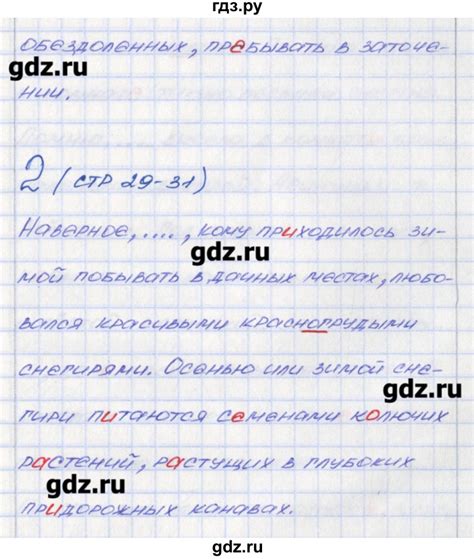 гдз.ру
обездоленных, пребывать в заточе-
gdz.ru
gdz.ru
нии.
2 (стр 29-31)
Наверное, ...., кому приходилось зи-
gdz.ru
мой побывать в дачных местах, любо-
вался красивыми красногрудыми
снегирями. Осенью или зимой сне-
gdz.ru
гири питаются семенами колючих
растений, растущих в глубоких
gdz.ru
придорожных канавах.
gdz.ru